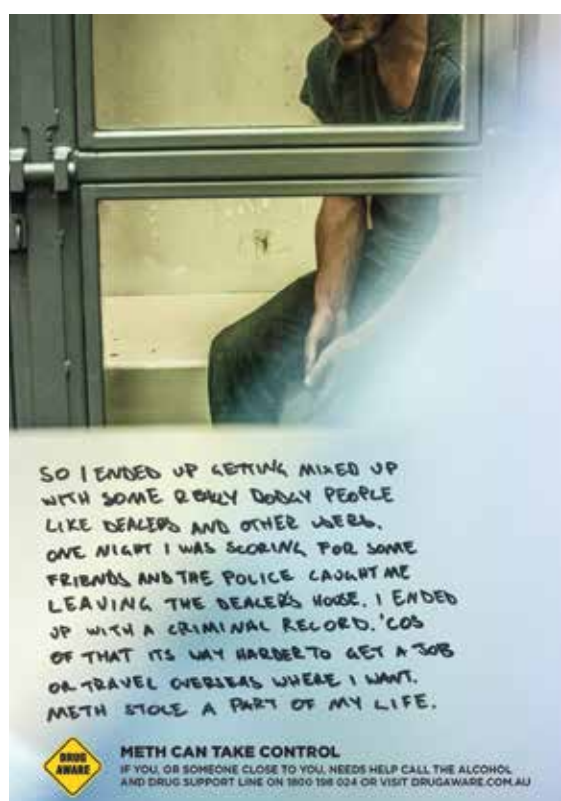 SO I ENDED UP GETTING MIXED UP
WITH SOME REALLY DODGY PEOPLE
LIKE DEALERS AND OTHER USERS.
ONE NIGHT I WAS SCORING FOR SOME
FRIENDS AND THE POLICE CAUGHT ME
LEAVING THE DEALER'S HOUSE. I ENDED
UP WITH A CRIMINAL RECORD. 'COS
OF THAT ITS WAY HARDER TO GET A JOB
OR TRAVEL OVERSEAS WHERE I WANT.
METH STOLE A PART OF MY LIFE.
DRUG
AWARE
METH CAN TAKE CONTROL
IF YOU, OR SOMEONE CLOSE TO YOU, NEEDS HELP CALL THE ALCOHOL
AND DRUG SUPPORT LINE ON 1800 198 024 OR VISIT DRUGAWARE.COM.AU